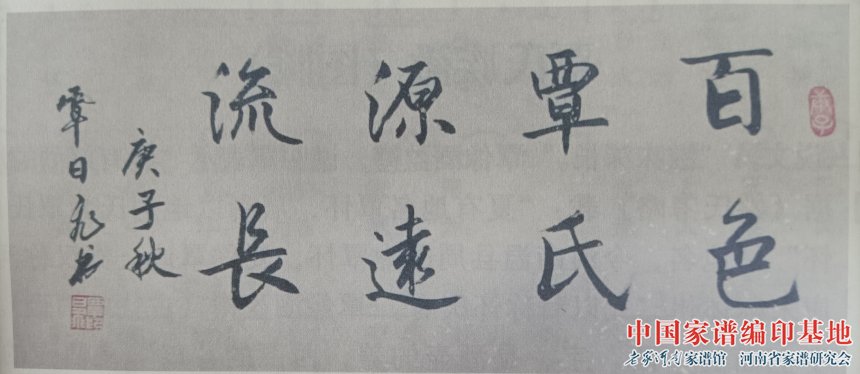 百色
覃氏
源遠
流長
庚子秋
覃日
书
庚子
中国家谱编印基地
老家河南家谱馆 河南省家谱研究会